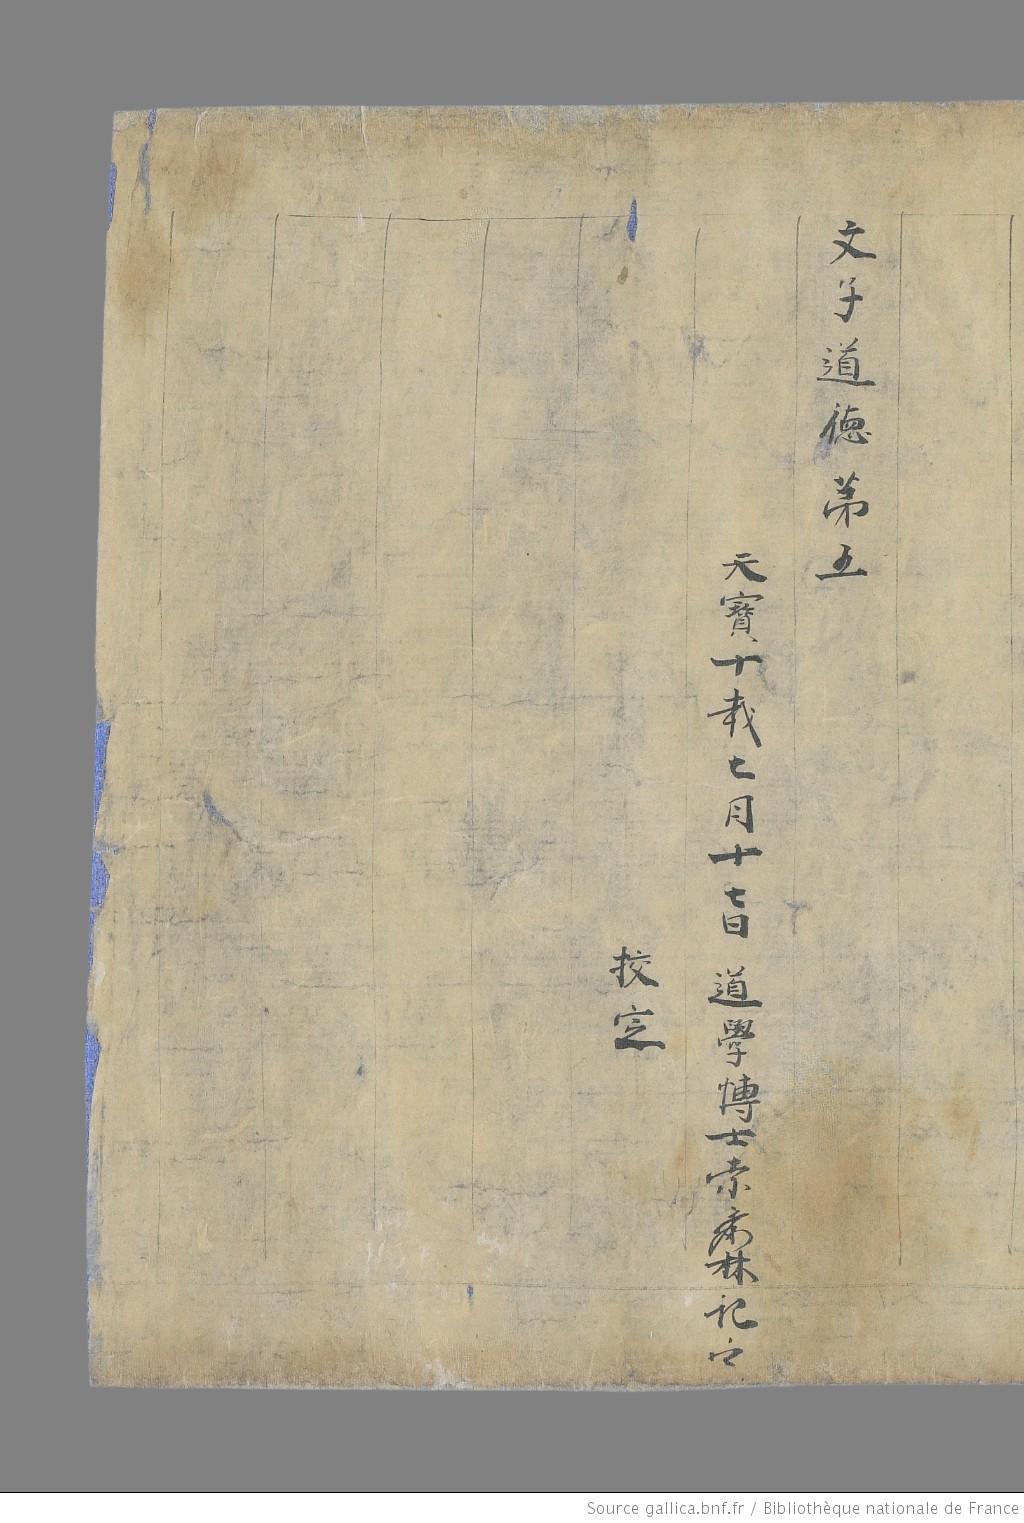 文子道德第五
天寶十載七月十七日 道學博士索肅林記之
校定
Source gallica.bnf.fr / Bibliothèque nationale de France